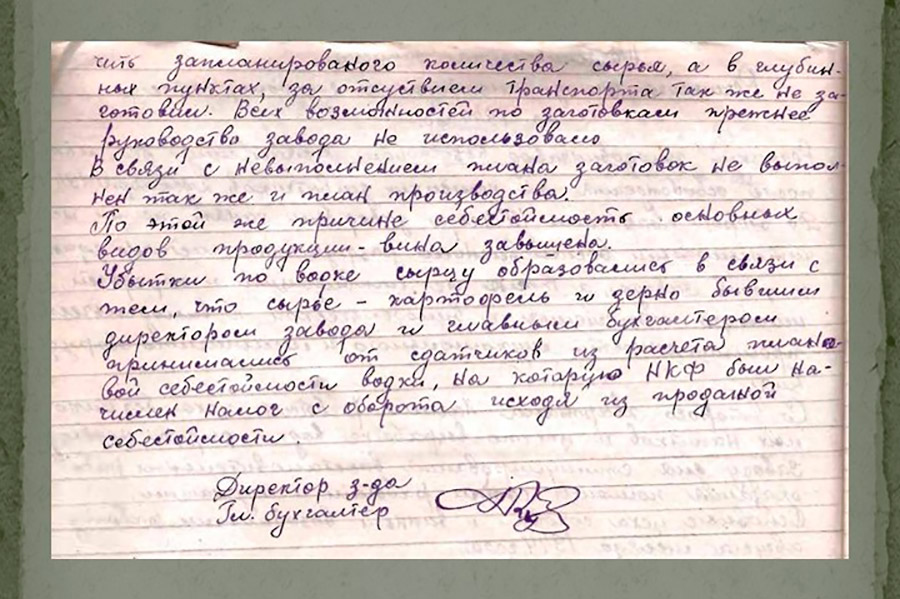 чить запланированого количества сырья, а в глубин-
ных пунктах, за отсуствием транспорта так же не за-
готовил. Всех возможностей по заготовкам прежнее
руководство завода не использовало
В связи с невыполнением плана заготовок не выпол-
нен так же и план производства.
По этой же причине себестоймость основных
видов продукции - вина завышена.
Убытки по водке сырцу образовались в связи с
тем, что сырье - картофель и зерно бывшим
директором завода и главным бухгалтером
принимались от сдатчиков из расчета плано-
вой себестоймости водки, на которую НКФ был на-
числен налог с оборота исходя из проданой
себестоймости.
Директор з-да
Гл. бухгалтер